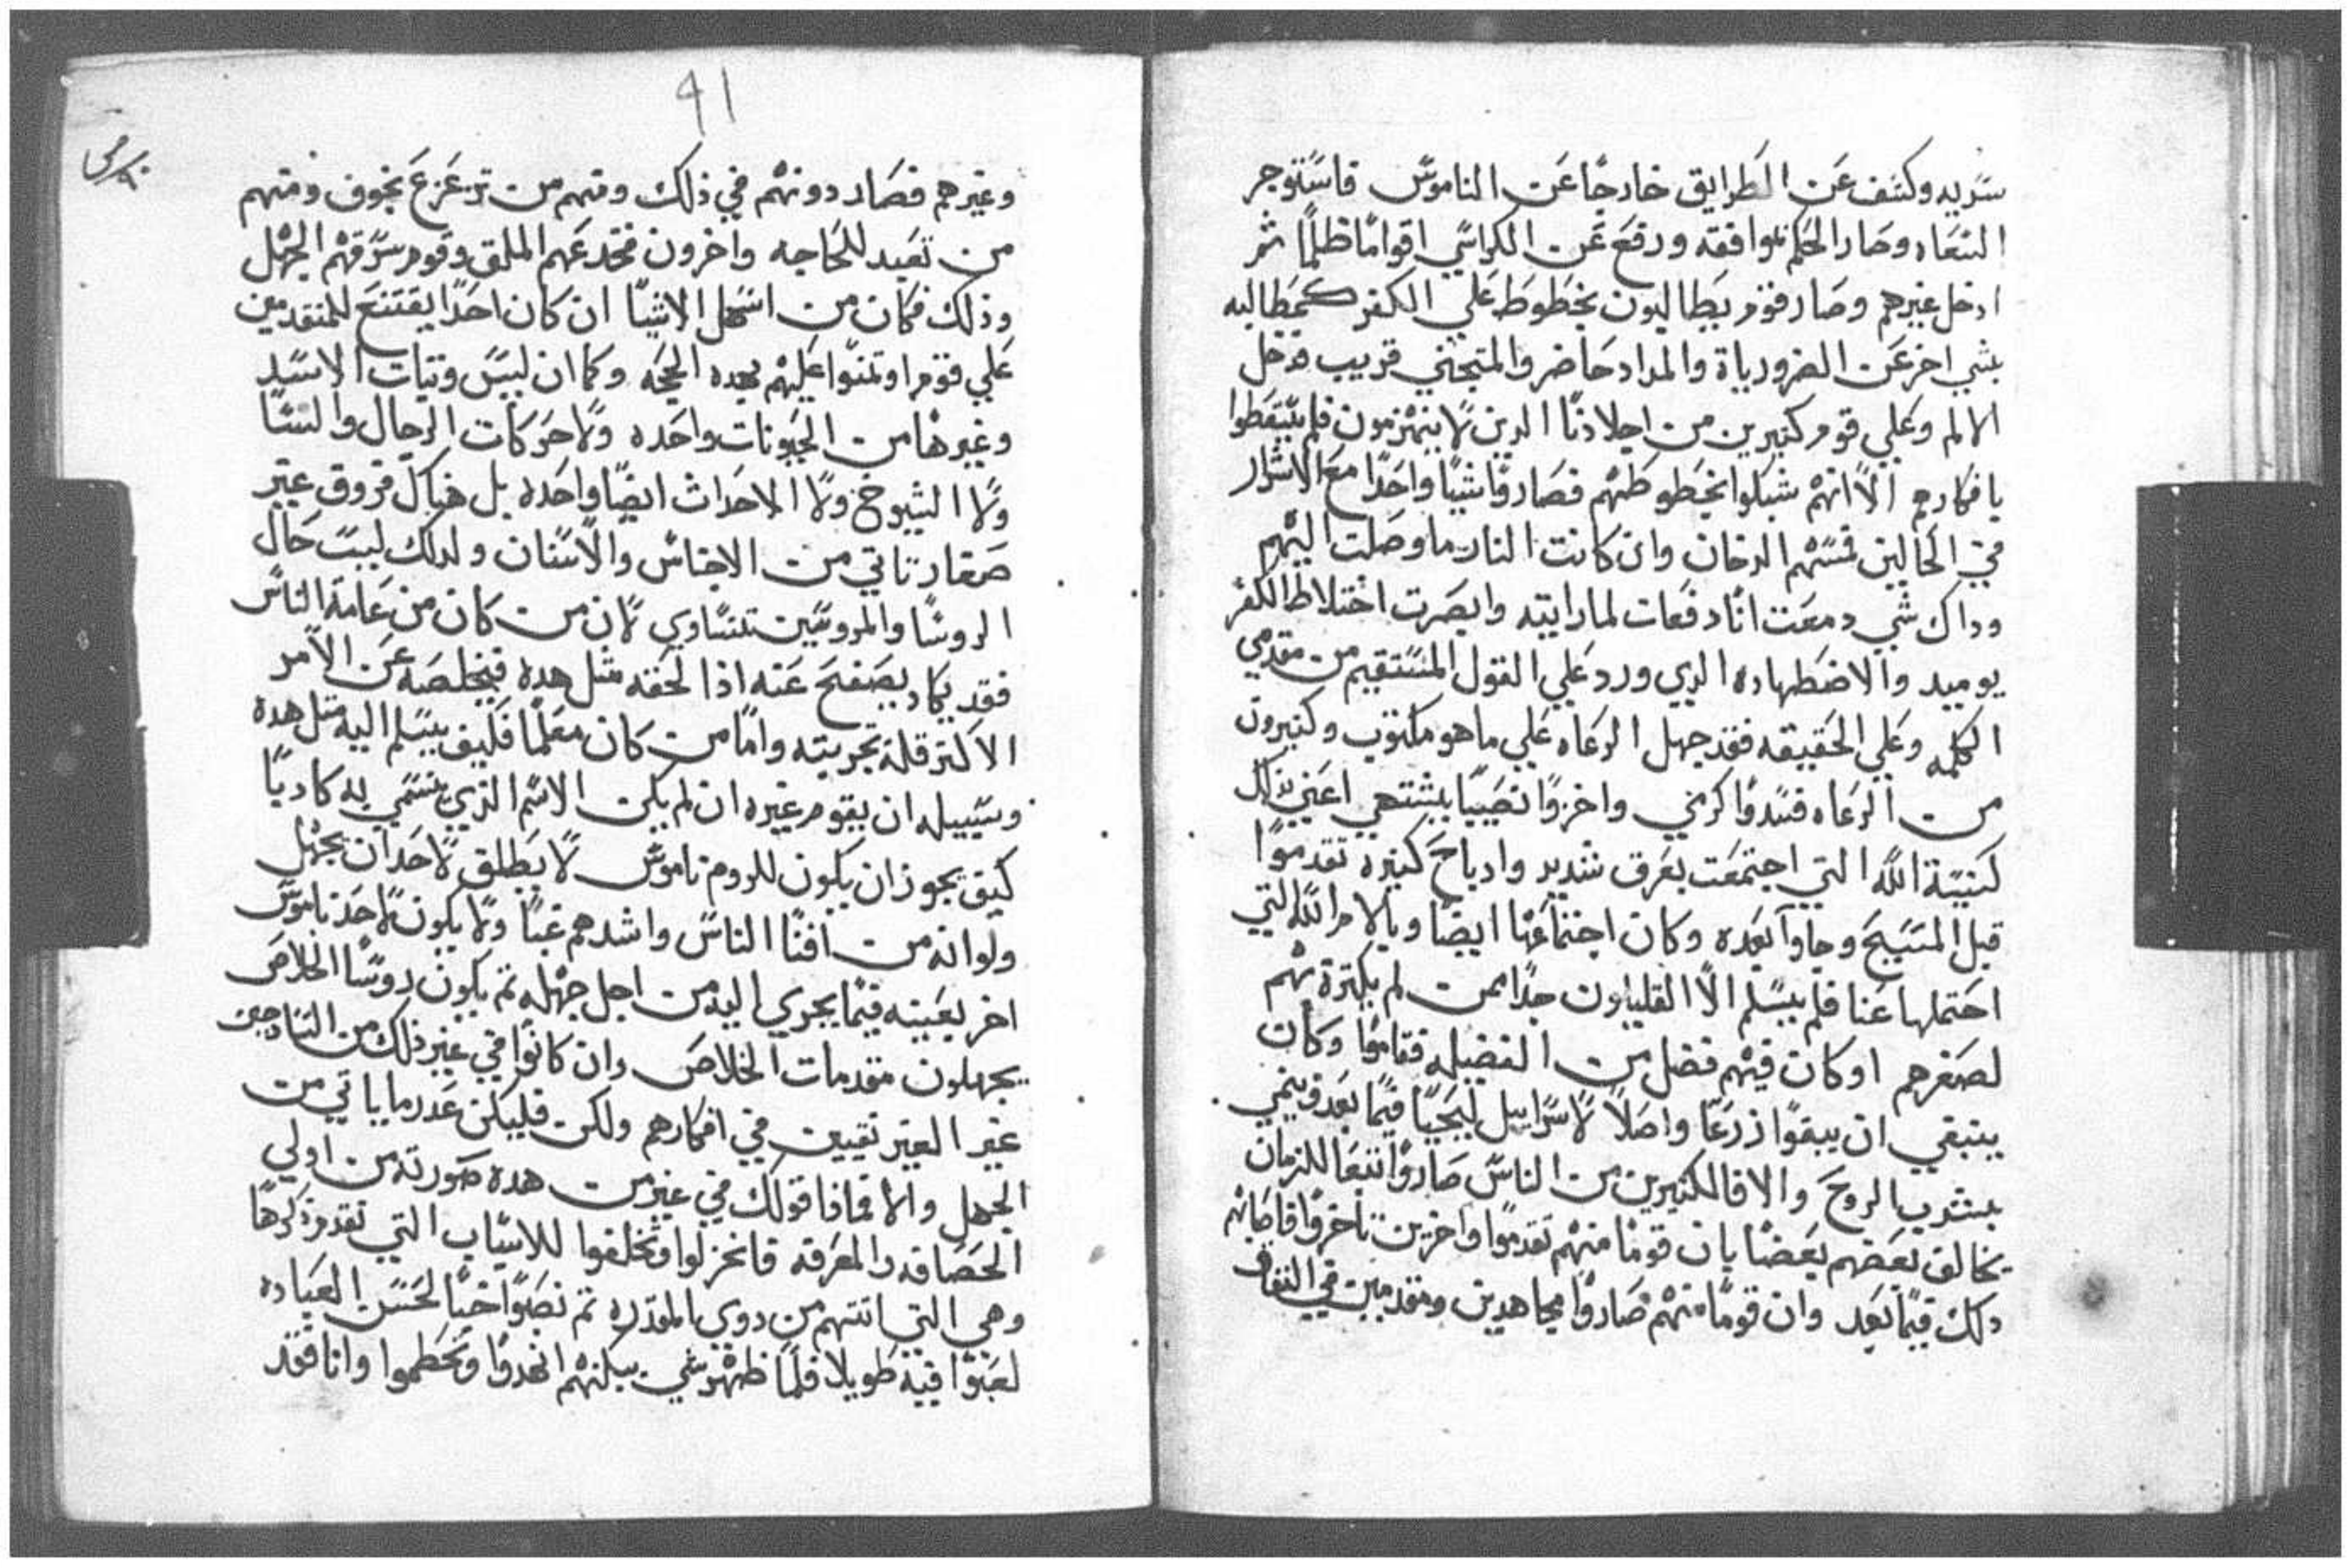 سريه وكشف عن الطرايق خارجًا عن الناموس فاستوجر
النعاه وصار الحكم نوافقه ورفع عن الكراسي اقوامًا ظلمًا ثم
ادخل غيرهم وصار قوم يطاليون بخطوط علي الكفر كمطاليه
بشي اخر عن الضرورياة والمداد حاضر والمتجني قريب فدخل
الالم وعلي قوم كثيرين من اجلادنا الدين لا ينهزمون فلم يسقطوا
بافكارهم الا انهم شبكوا بخطوطهم فصاروا شيًا واحدًا مع الاشرار
في الحالين فمسهم الدخان وان كانت النار ما وصلت اليهم
وداك شي دمعت انا دفعات لما رايته وابصرت اختلاط الكفر
يوميد والاضطهاده الدي ورد علي القول المستقيم من مقدمي
الكلمه وعلي الحقيقه فقد جهل الرعاه علي ما هو مكتوب وكثيرون
من الرعاه فسدوا كرمي واخزوا نصيبًا يشتهي اعني بذلك
كنيسة الله التي اجتمعت بعرق شديد وادباح كثيره تقدموا
قبل المسيح وجاوا بعده وكان اجتماعها ايضا وبالام الله التي
احتملها عنا فلم يسلم الا القليلون جدًا ممن لم يكترة بهم
لصغرهم او كان فيهم فضل من الفضيله فقاموا وكان
ينبغي ان يبقوا زرعًا واصلًا لاسراييل ليحيا فيما بعد وينمي
بشرب الروح والا فالكثيرين من الناس صاروا تبعا للزمان
يخالف بعضهم بعضًا بان قومًا منهم تقدموا واخرين تاخروا فاصابهم
دلك فيما بعد وان قومًا منهم صاروا مجاهدين ومقدمين في النفاق
41
وغيرهم فصار دونهم في ذلك ومنهم من تزعزع بخوف ومنهم
من تعبد للحاجه واخرون فخدعهم الملق وقوم سرقهم الجهل
وذلك فكان من اسهل الاشيا ان كان احدًا يقتنع للمتقدمين
علي قوم او تمنوا عليهم بهده الحجه وكما ان ليس وتبات الاسد
وغيرها من الحيونات واحده ولا حركات الرجال والنسا
ولا الشيوخ ولا الاحداث ايضًا واحده بل هناك فروق غير
صغار تاتي من الاجناس والاسنان ولدلك ليست حال
الروسا والمروسين تتساوي لان من كان من عامة الناس
فقد يكاد يصفح عنه اذا لحقه مثل هده فيخلصه عن الامر
الاكثر قلة تجربته واما من كان معلمًا فكيف يسلم اليه مثل هدة
وسبيله ان يقوم غيره ان لم يكن الاسم الذي يتسمي به كاديًا
كيف يجوز ان يكون للروم ناموس لا يطلق لاحد ان يجهل
ولو انه من افنا الناس واشدهم غبًا ولا يكون لاحد ناموس
اخر يعينه فيما يجري اليه من اجل جهله ثم يكون روسًا الخلاص
يجهلون مقدمات الخلاص وان كانوا في غير ذلك من السادجين
غير العير نقيين في افكارهم ولكن فليكن عدر ما ياتي من
الجهل والا فماذا قولك في غير من هده صورته من اولي
الحصافه والمعرفه فانخزلوا وتخلفوا للاسباب التي تقدم ذكرها
وهي التي اتتهم من دوي المقدره ثم نصبوا خبًا لحسن العباده
لعبوا فيه طويلا فلما ظهر شي يبكتهم انهدوا وتحطموا وانا فقد